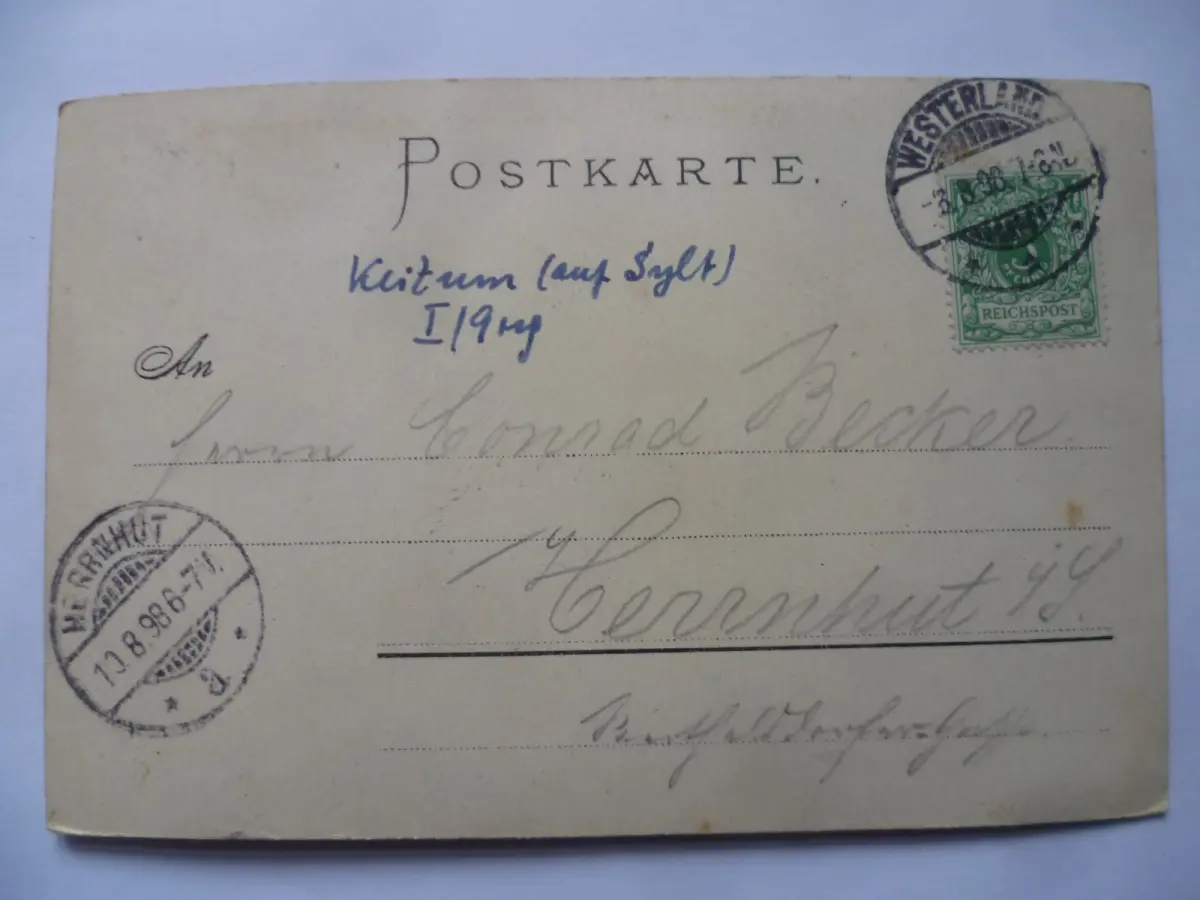 POSTKARTE.
WESTERLAND
8.98. 7-8N.
REICHSPOST
Keitum (auf Sylt)
An
Herrn Conrad Becker.
Herrnhut i/S.
Berthelsdorfer-Gasse.
HERRNHUT
10.8.98 6-7V.
a